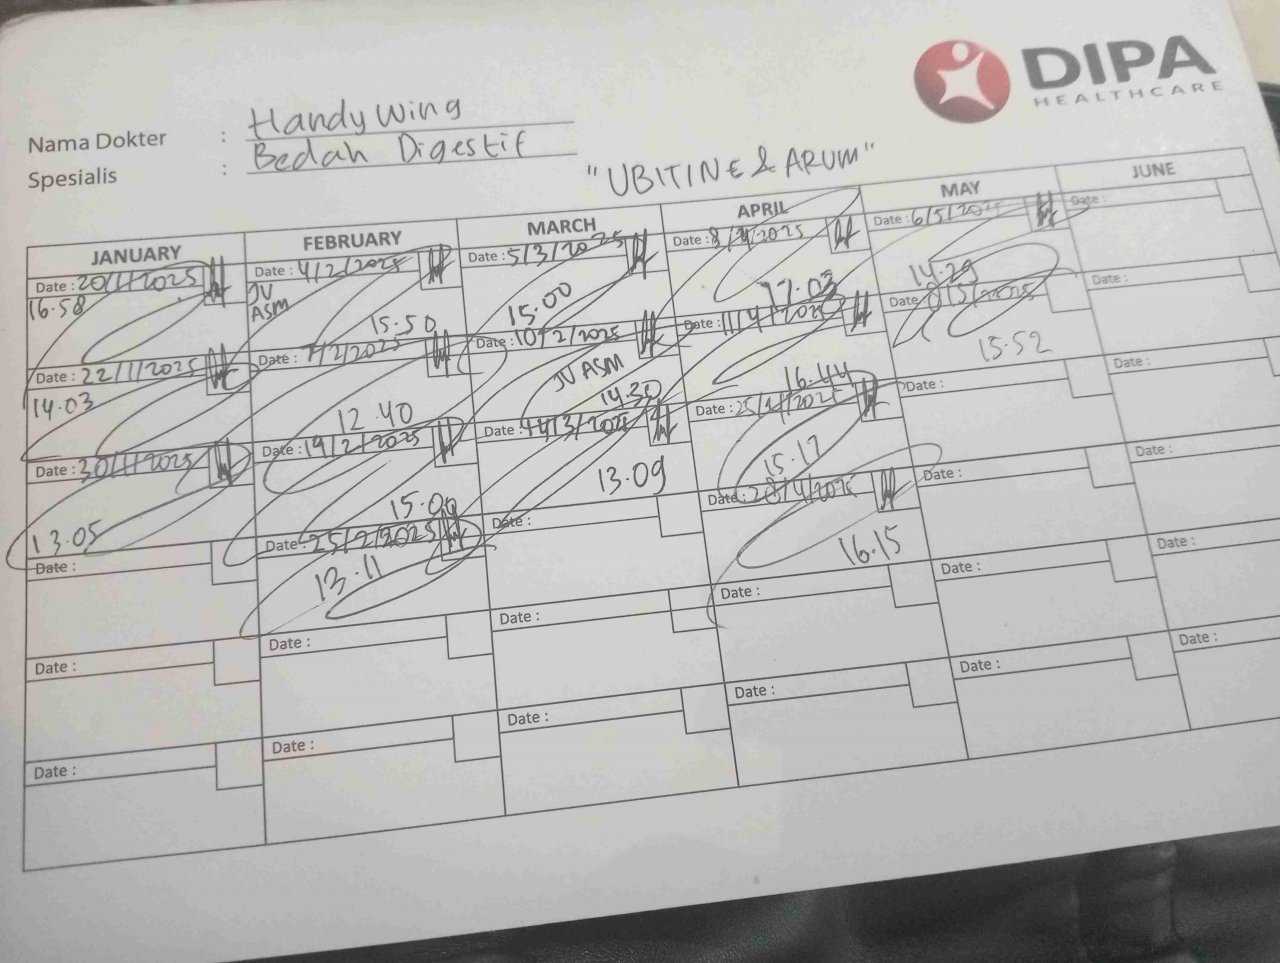 DIPA
HEALTHCARE
Nama Dokter : Handy Wing
Spesialis : Bedah Digestif
"UBITINE & ARUM"
JANUARY FEBRUARY MARCH APRIL MAY JUNE
Date : 20/1/2025 Date : 4/2/2025 Date : 5/3/2025 Date : 8/4/2025 Date : 6/5/2025 Date :
16.58 JV ASM 15.50 15.00 17.03 14.29
Date : 22/1/2025 Date : 7/2/2025 Date : 10/2/2025 Date : 11/4/2025 Date : /5/2025 Date :
14.03 12.40 JV ASM 14.30 16.44 15.52
Date : 30/1/2025 Date : 19/2/2025 Date : 14/3/2025 Date : 25/4/2025 Date : Date :
13.05 15.00 13.09 15.17
Date : Date : 25/2/2025 Date : Date : 28/4/2025 Date : Date :
13.11 16.15
Date : Date : Date : Date : Date : Date :
Date : Date : Date : Date : Date : Date :